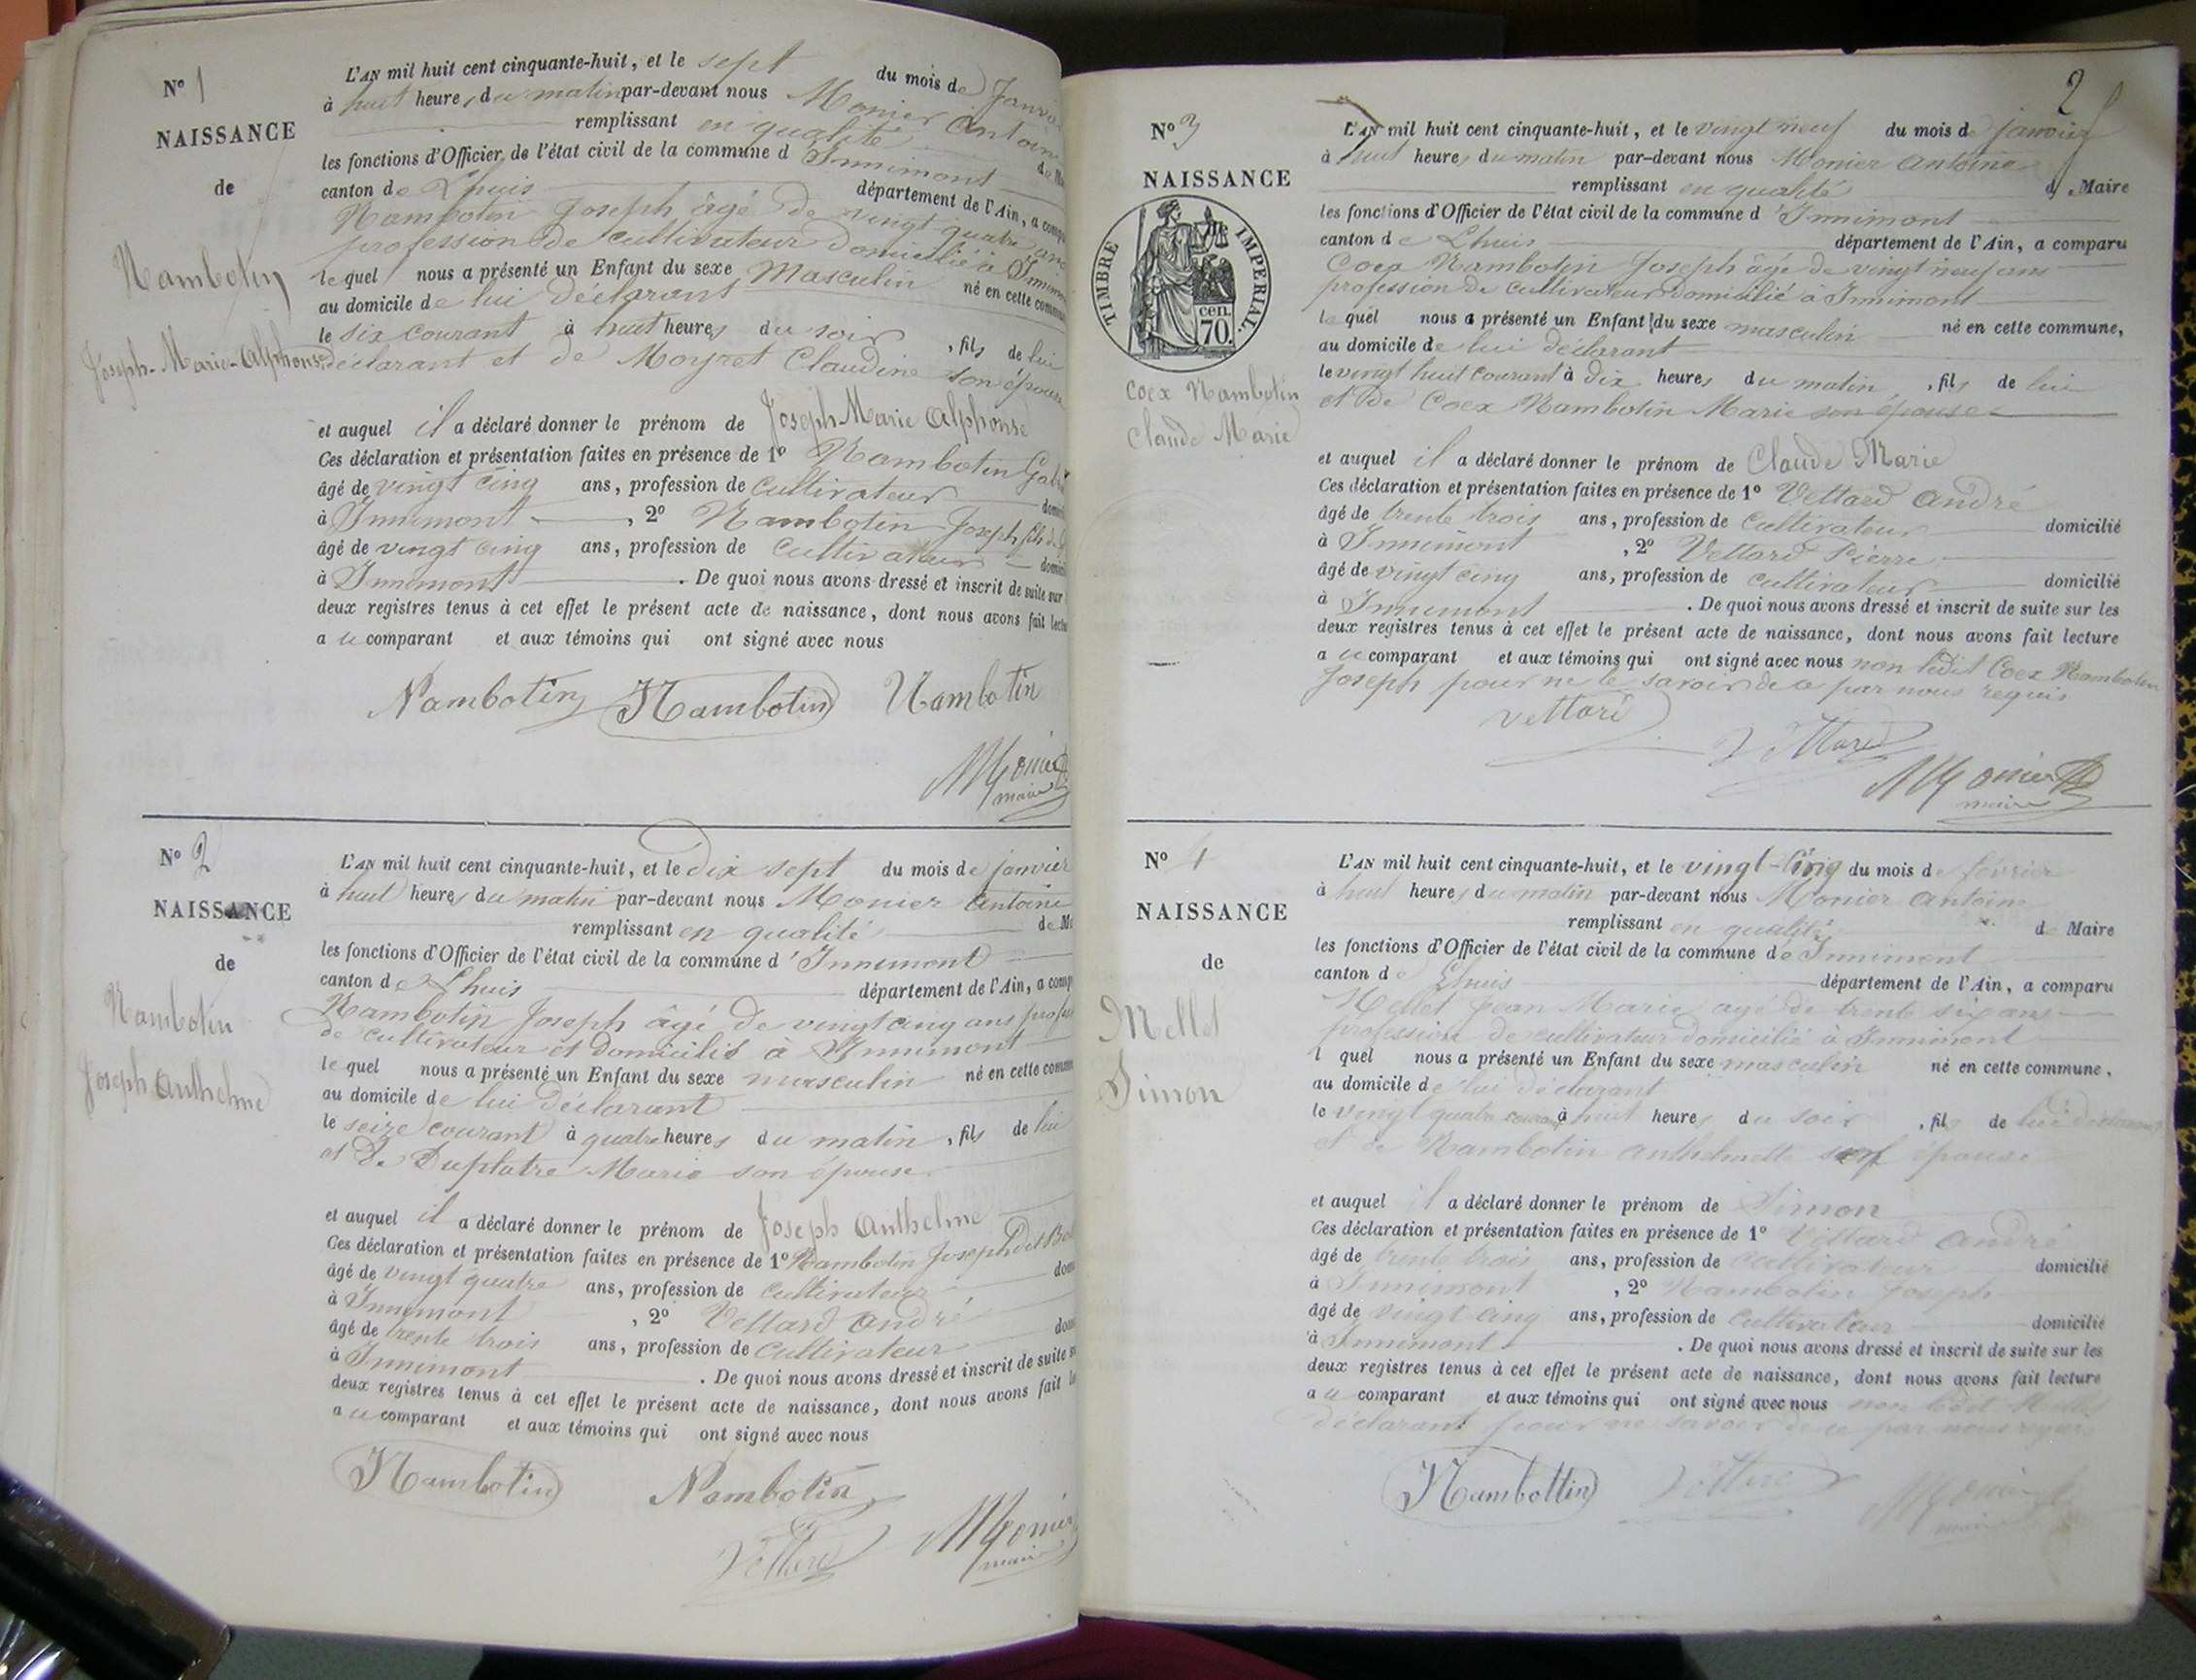 N° 1
NAISSANCE
de
Nambotin
Joseph-Marie-Alphonse
L'AN mil huit cent cinquante-huit, et le sept du mois de Janvier
à huit heures du matin par-devant nous Monier Antoine
remplissant en qualité de
les fonctions d'Officier de l'état civil de la commune d'Innimont
canton de Lhuis département de l'Ain, a comp
Nambotin Joseph âgé de vingt quatre ans
profession de cultivateur domicilié à Innimont
lequel nous a présenté un Enfant du sexe Masculin né en cette commu
au domicile de lui déclarant
le six courant à huit heures du soir, fils de lui
déclarant et de Moyret Claudine son épouse
et auquel il a déclaré donner le prénom de Joseph Marie Alphonse
Ces déclaration et présentation faites en présence de 1° Nambotin
âgé de vingt cinq ans, profession de cultivateur domi
à Innimont, 2° Nambotin Joseph fils de
âgé de vingt cinq ans, profession de cultivateur domici
à Innimont. De quoi nous avons dressé et inscrit de suite sur
deux registres tenus à cet effet le présent acte de naissance, dont nous avons fait lectu
au comparant et aux témoins qui ont signé avec nous
Nambotin Nambotin Nambotin
Monier
maire
N° 2
NAISSANCE
de
Nambotin
Joseph Anthelme
L'AN mil huit cent cinquante-huit, et le dix sept du mois de janvier
à huit heures du matin par-devant nous Monier Antoine
remplissant en qualité de M
les fonctions d'Officier de l'état civil de la commune d'Innimont
canton de Lhuis département de l'Ain, a comp
Nambotin Joseph âgé de vingt cinq ans profes
de cultivateur et domicilié à Innimont
lequel nous a présenté un Enfant du sexe masculin né en cette comm
au domicile de lui déclarant
le seize courant à quatre heures du matin, fils de lui
et de Duplatre Marie son épouse
et auquel il a déclaré donner le prénom de Joseph Anthelme
Ces déclaration et présentation faites en présence de 1° Nambotin Joseph dit
âgé de vingt quatre ans, profession de cultivateur dom
à Innimont, 2° Vettard André
âgé de trente trois ans, profession de cultivateur dom
à Innimont. De quoi nous avons dressé et inscrit de suite s
deux registres tenus à cet effet le présent acte de naissance, dont nous avons fait le
au comparant et aux témoins qui ont signé avec nous
Nambotin Nambotin
Vettard Monier
maire
2
N° 3
NAISSANCE
TIMBRE IMPERIAL.
cen.
70.
Coex Nambotin
Claude Marie
L'AN mil huit cent cinquante-huit, et le vingt neuf du mois de janvier
à huit heures du matin par-devant nous Monier Antoine
remplissant en qualité de Maire
les fonctions d'Officier de l'état civil de la commune d'Innimont
canton de Lhuis département de l'Ain, a comparu
Coex Nambotin Joseph âgé de vingt neuf ans
profession de cultivateur domicilié à Innimont
lequel nous a présenté un Enfant du sexe masculin né en cette commune,
au domicile de lui déclarant
le vingt huit courant à dix heures du matin, fils de lui
et de Coex Nambotin Marie son épouse
et auquel il a déclaré donner le prénom de Claude Marie
Ces déclaration et présentation faites en présence de 1° Vettard André
âgé de trente trois ans, profession de cultivateur domicilié
à Innimont, 2° Vettard Pierre
âgé de vingt cinq ans, profession de cultivateur domicilié
à Innimont. De quoi nous avons dressé et inscrit de suite sur les
deux registres tenus à cet effet le présent acte de naissance, dont nous avons fait lecture
au comparant et aux témoins qui ont signé avec nous non ledit Coex Nambotin
Joseph pour ne le savoir de ce par nous requis
Vettard
Vettard
Monier
maire
N° 4
NAISSANCE
de
Mellet
Simon
L'AN mil huit cent cinquante-huit, et le vingt-cinq du mois de février
à huit heures du matin par-devant nous Monier Antoine
remplissant en qualité de Maire
les fonctions d'Officier de l'état civil de la commune de Innimont
canton de Lhuis département de l'Ain, a comparu
Mellet Jean Marie agé de trente six ans
profession de cultivateur domicilié à Innimont
l quel nous a présenté un Enfant du sexe masculin né en cette commune,
au domicile de lui déclarant
le vingt quatre courant à huit heures du soir, fils de lui déclarant
et de Nambotin Anthelmette son épouse
et auquel il a déclaré donner le prénom de Simon
Ces déclaration et présentation faites en présence de 1° Vettard André
âgé de trente trois ans, profession de cultivateur domicilié
à Innimont, 2° Nambotin Joseph
âgé de vingt cinq ans, profession de cultivateur domicilié
à Innimont. De quoi nous avons dressé et inscrit de suite sur les
deux registres tenus à cet effet le présent acte de naissance, dont nous avons fait lecture
au comparant et aux témoins qui ont signé avec nous non ledit Mellet
déclarant pour ne savoir de ce par nous requis
Nambottin Vettard Monier
maire